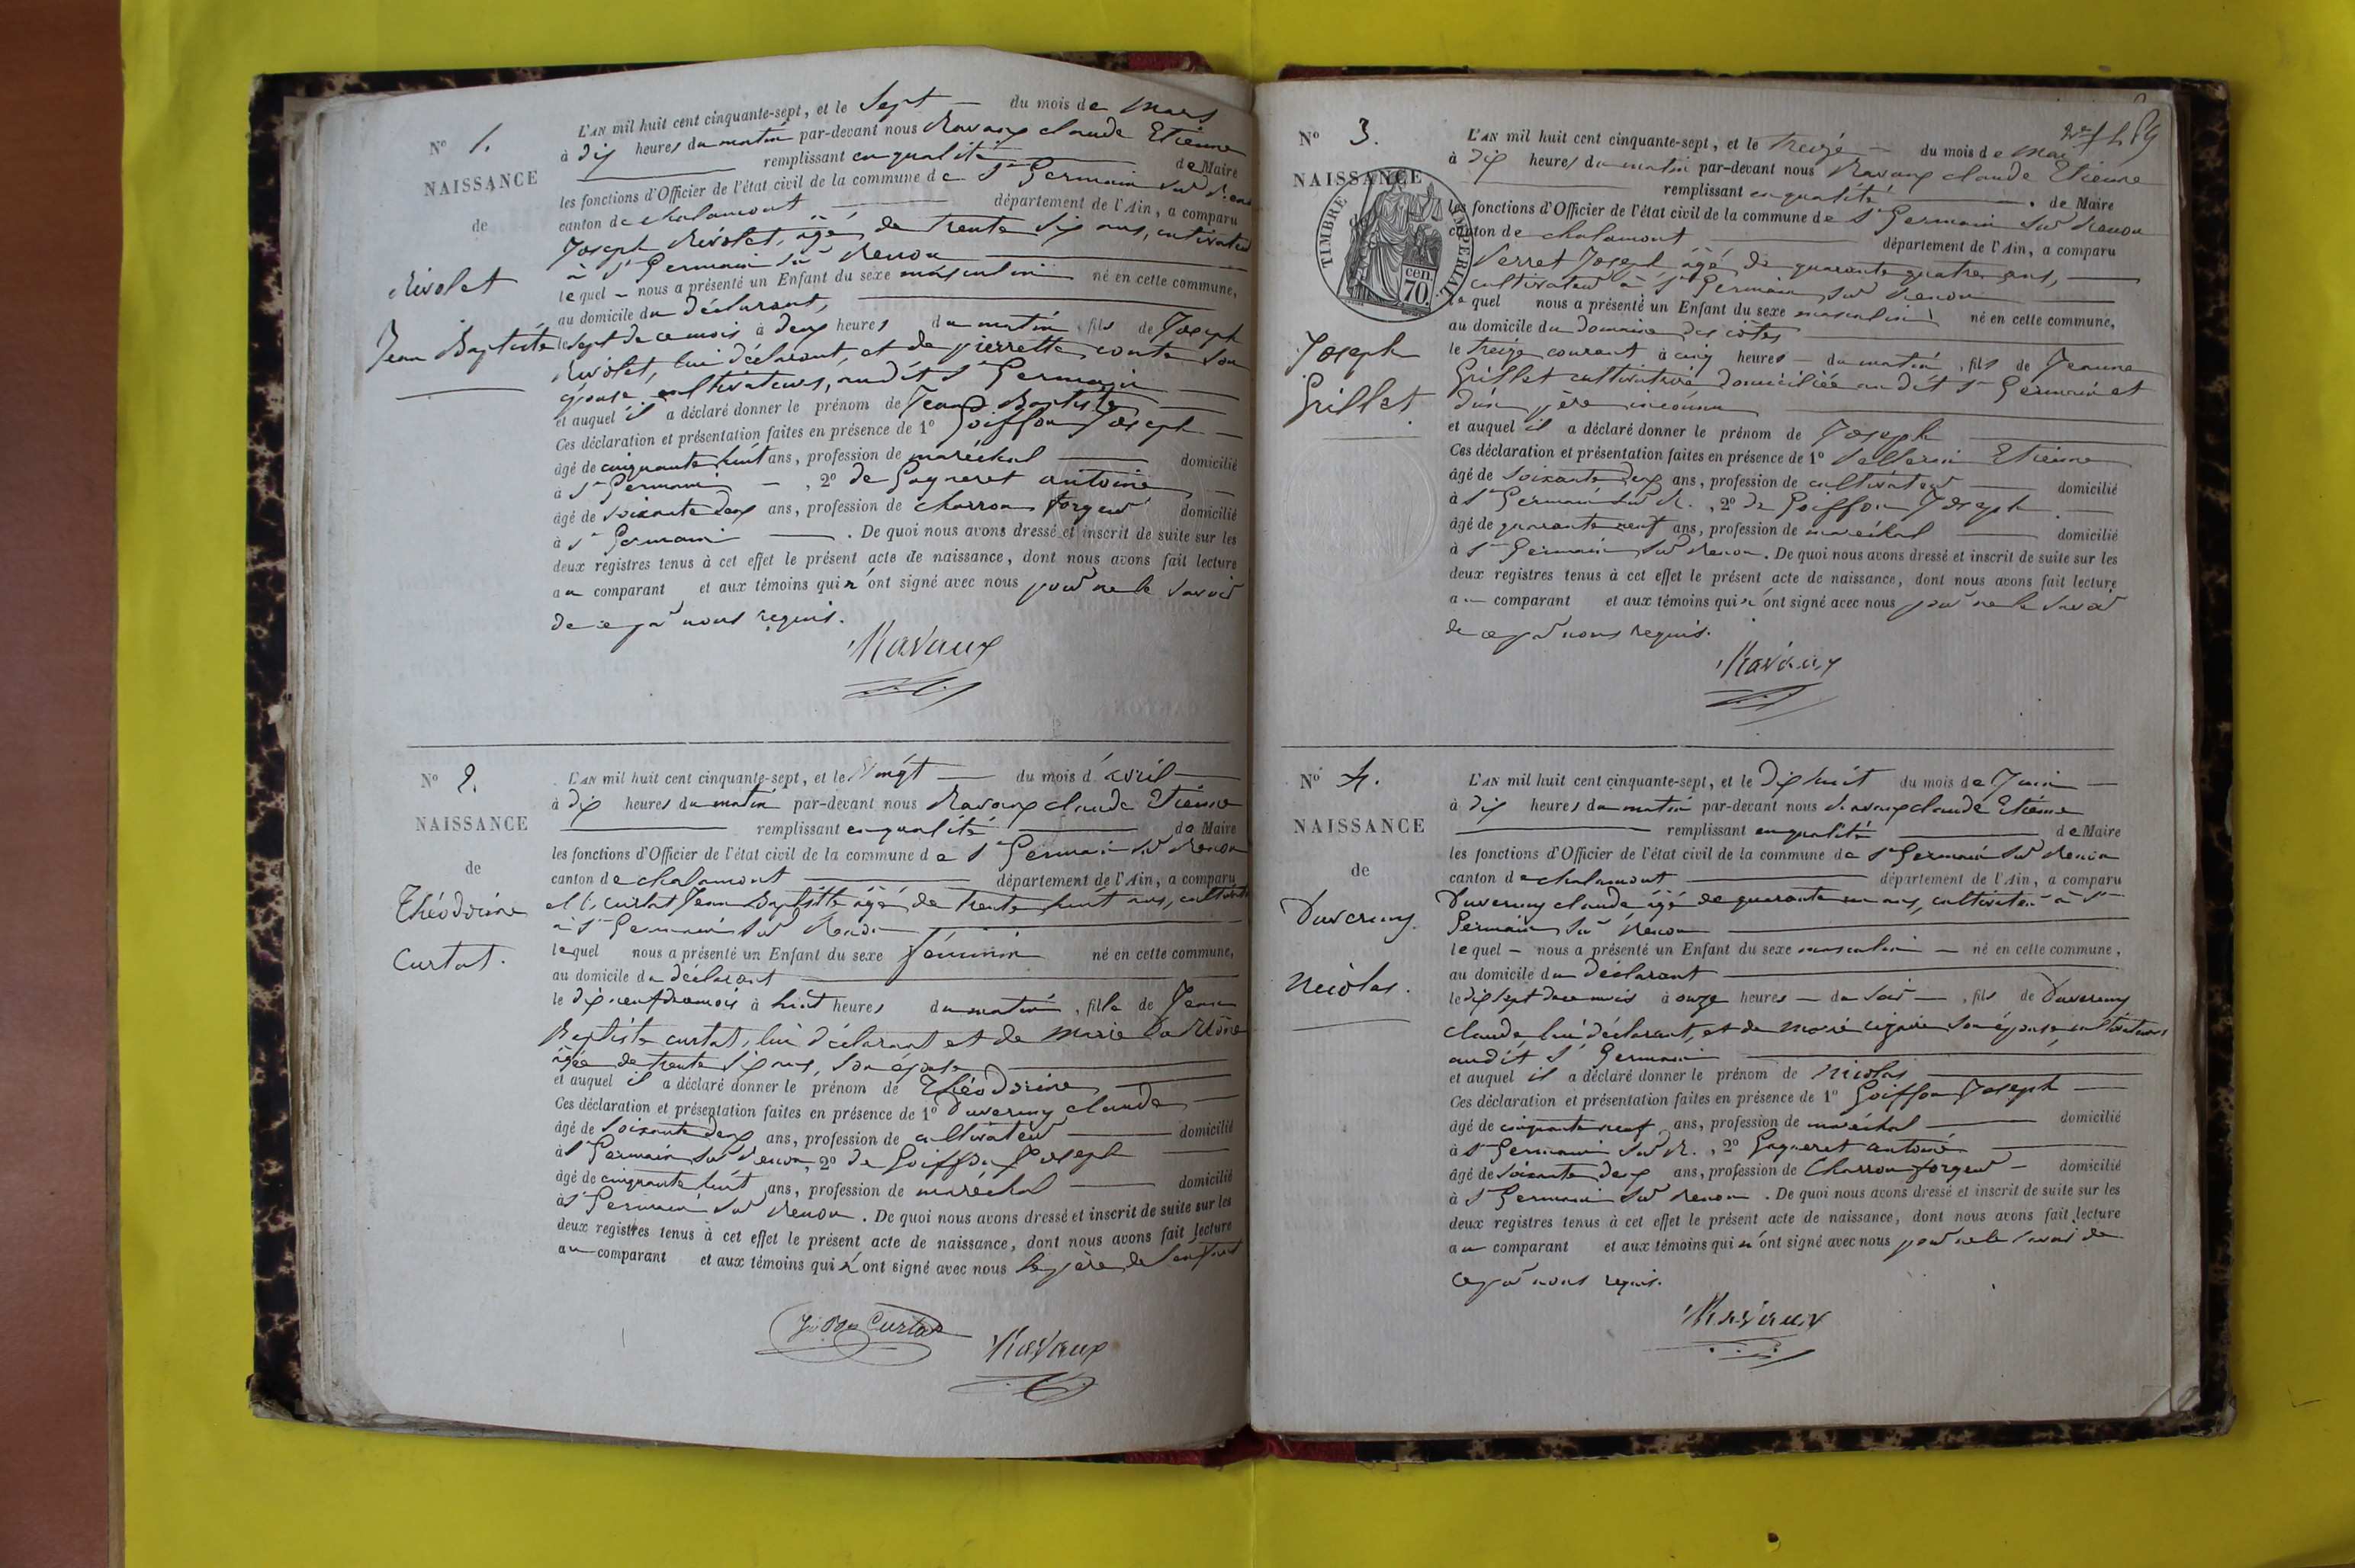 N° 1.
NAISSANCE
de
Rivolet
Jean Baptiste
L'AN mil huit cent cinquante-sept, et le Sept du mois de Mars
à dix heures du matin par-devant nous Ravaux claude Etienne
remplissant en qualité de Maire
les fonctions d'Officier de l'état civil de la commune de St Germain sur Renon
canton de chalamont département de l'Ain, a comparu
Joseph Rivolet, âgé de trente six ans, cultivateur
à St Germain sur Renon
lequel nous a présenté un Enfant du sexe masculin né en cette commune,
au domicile du déclarant,
le sept de ce mois à deux heures du matin, fils de Joseph
Rivolet, lui déclarant, et de pierrette conte son
épouse cultivateurs, audit St Germain
et auquel il a déclaré donner le prénom de Jean Baptiste
Ces déclaration et présentation faites en présence de 1° Goiffon Joseph
âgé de cinquante huit ans, profession de maréchal domicilié
à St Germain, 2° de Gagneret antoine
âgé de soixante deux ans, profession de charron forgeur domicilié
à St Germain. De quoi nous avons dressé et inscrit de suite sur les
deux registres tenus à cet effet le présent acte de naissance, dont nous avons fait lecture
au comparant et aux témoins qui n'ont signé avec nous pour ne le savoir
de ce par nous requis.
Ravaux
N° 2.
NAISSANCE
de
Théodorine
Curtat.
L'AN mil huit cent cinquante-sept, et le Vingt du mois d'avril
à dix heures du matin par-devant nous Ravaux claude Etienne
remplissant en qualité de Maire
les fonctions d'Officier de l'état civil de la commune de St Germain sur Renon
canton de chalamont département de l'Ain, a comparu
curtat Jean Baptiste âgé de trente huit ans, cultivateur
à St Germain sur Renon
lequel nous a présenté un Enfant du sexe féminin né en cette commune,
au domicile du déclarant
le dix neuf du mois à huit heures du matin, fille de Jean
Baptiste curtat, lui déclarant et de Marie
âgée de trente six ans, son épouse
et auquel il a déclaré donner le prénom de Théodorine
Ces déclaration et présentation faites en présence de 1° Duverney claude
âgé de soixante deux ans, profession de cultivateur domicilié
à St Germain sur Renon, 2° de Goiffon Joseph
âgé de cinquante huit ans, profession de maréchal domicilié
à St Germain sur Renon. De quoi nous avons dressé et inscrit de suite sur les
deux registres tenus à cet effet le présent acte de naissance, dont nous avons fait lecture
au comparant et aux témoins qui n'ont signé avec nous le père de l'enfant
Curtat
Ravaux
N° 3.
NAISSANCE
TIMBRE IMPERIAL
70 cen
Joseph
Grillet
L'AN mil huit cent cinquante-sept, et le treize du mois de Mai
à dix heures du matin par-devant nous Ravaux claude Etienne
remplissant en qualité de Maire
les fonctions d'Officier de l'état civil de la commune de St Germain sur Renon
canton de chalamont département de l'Ain, a comparu
Verret Joseph âgé de quarante quatre ans,
cultivateur à St Germain sur Renon
lequel nous a présenté un Enfant du sexe masculin né en cette commune,
au domicile du Domaine des côtes
le treize courant à cinq heures du matin, fils de Jeanne
Grillet cultivatrice domiciliée audit St Germain et
d'un père inconnu
et auquel il a déclaré donner le prénom de Joseph
Ces déclaration et présentation faites en présence de 1° Pellerin Etienne
âgé de soixante deux ans, profession de cultivateur domicilié
à St Germain sur R., 2° de Goiffon Joseph
âgé de quarante neuf ans, profession de maréchal domicilié
à St Germain sur Renon. De quoi nous avons dressé et inscrit de suite sur les
deux registres tenus à cet effet le présent acte de naissance, dont nous avons fait lecture
au comparant et aux témoins qui n'ont signé avec nous pour ne le savoir
de ce par nous requis.
Ravaux
N° 4.
NAISSANCE
de
Duverney
Nicolas.
L'AN mil huit cent cinquante-sept, et le Dix huit du mois de Juin
à dix heures du matin par-devant nous Ravaux claude Etienne
remplissant en qualité de Maire
les fonctions d'Officier de l'état civil de la commune de St Germain sur Renon
canton de chalamont département de l'Ain, a comparu
Duverney claude âgé de quarante un ans, cultivateur à St
Germain sur Renon
lequel nous a présenté un Enfant du sexe masculin né en cette commune,
au domicile du déclarant
le dix sept de ce mois à onze heures du soir, fils de Duverney
claude, lui déclarant, et de Marie son épouse cultivateurs
audit St Germain
et auquel il a déclaré donner le prénom de Nicolas
Ces déclaration et présentation faites en présence de 1° Goiffon Joseph
âgé de cinquante neuf ans, profession de maréchal domicilié
à St Germain sur R., 2° Gagneret antoine
âgé de soixante deux ans, profession de Charron forgeur domicilié
à St Germain sur Renon. De quoi nous avons dressé et inscrit de suite sur les
deux registres tenus à cet effet le présent acte de naissance, dont nous avons fait lecture
au comparant et aux témoins qui n'ont signé avec nous pour ne le savoir de
ce par nous requis.
Ravaux